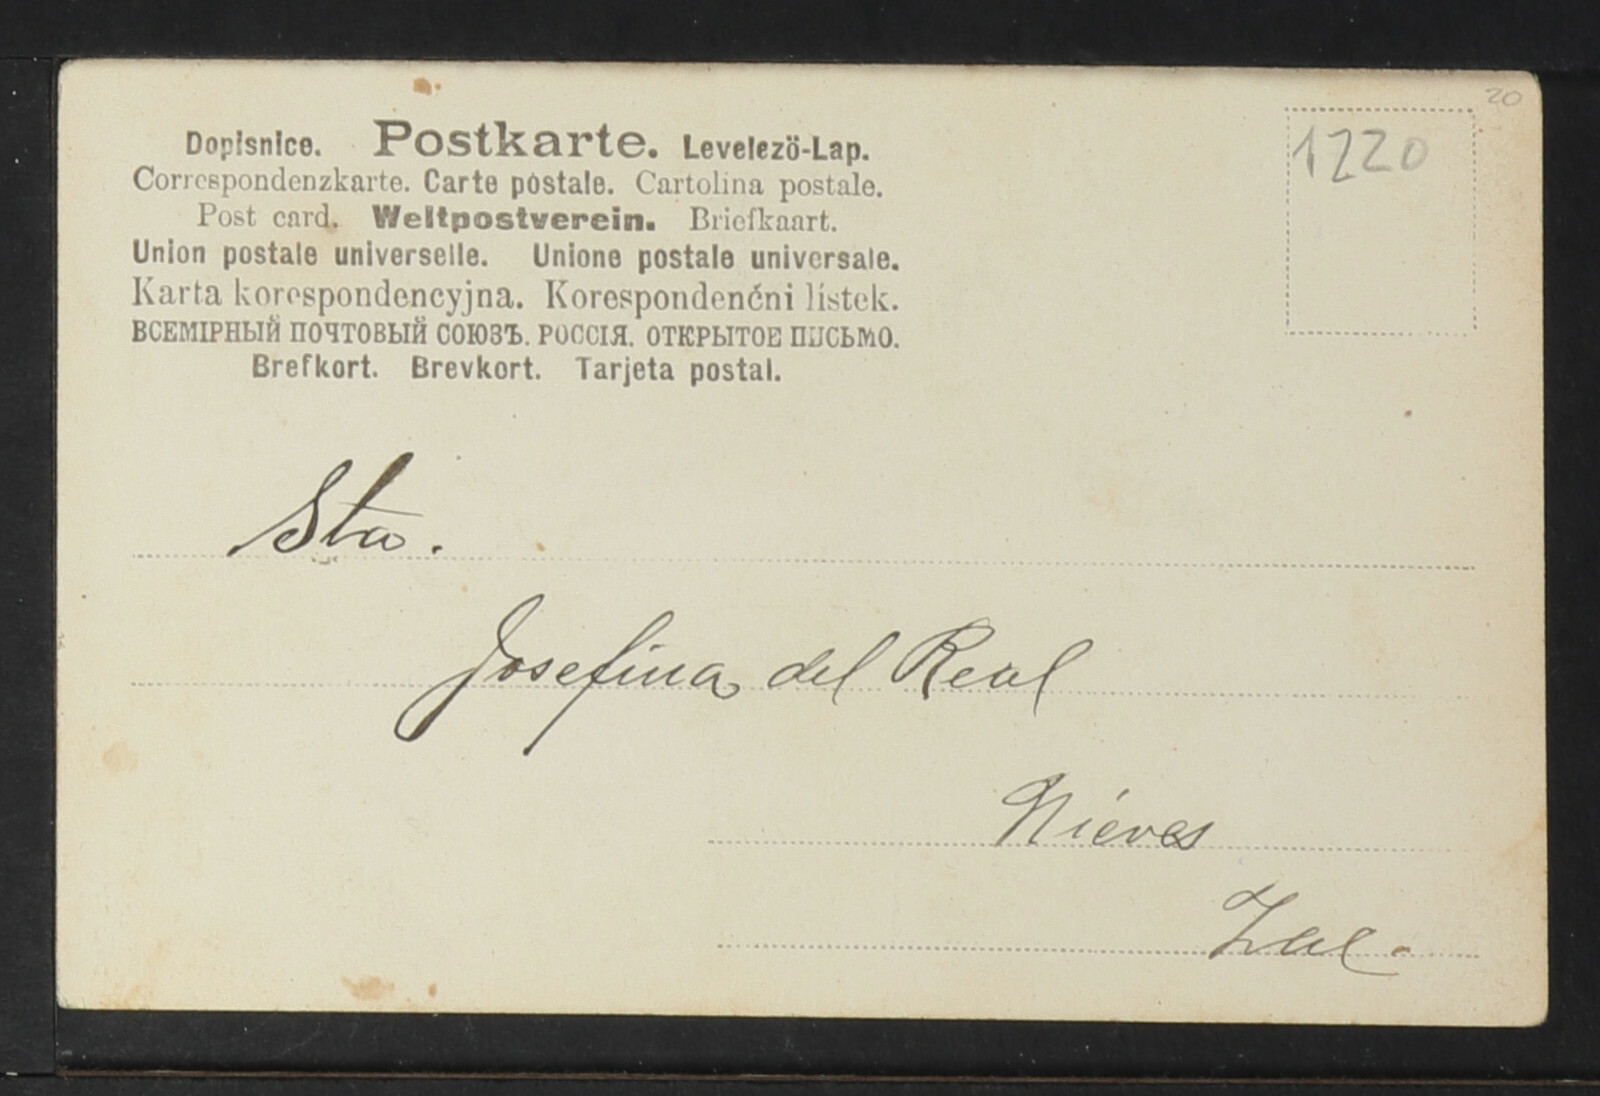 20
1220
Dopisnice. Postkarte. Levelezö-Lap.
Correspondenzkarte. Carte postale. Cartolina postale.
Post card. Weltpostverein. Briefkaart.
Union postale universelle. Unione postale universale.
Karta korespondencyjna. Korespondenčni lístek.
ВСЕМІРНЫЙ ПОЧТОВЫЙ СОЮЗЪ. РОССІЯ. ОТКРЫТОЕ ПИСЬМО.
Brefkort. Brevkort. Tarjeta postal.
Sta.
Josefina del Real
Nieves
Zac.